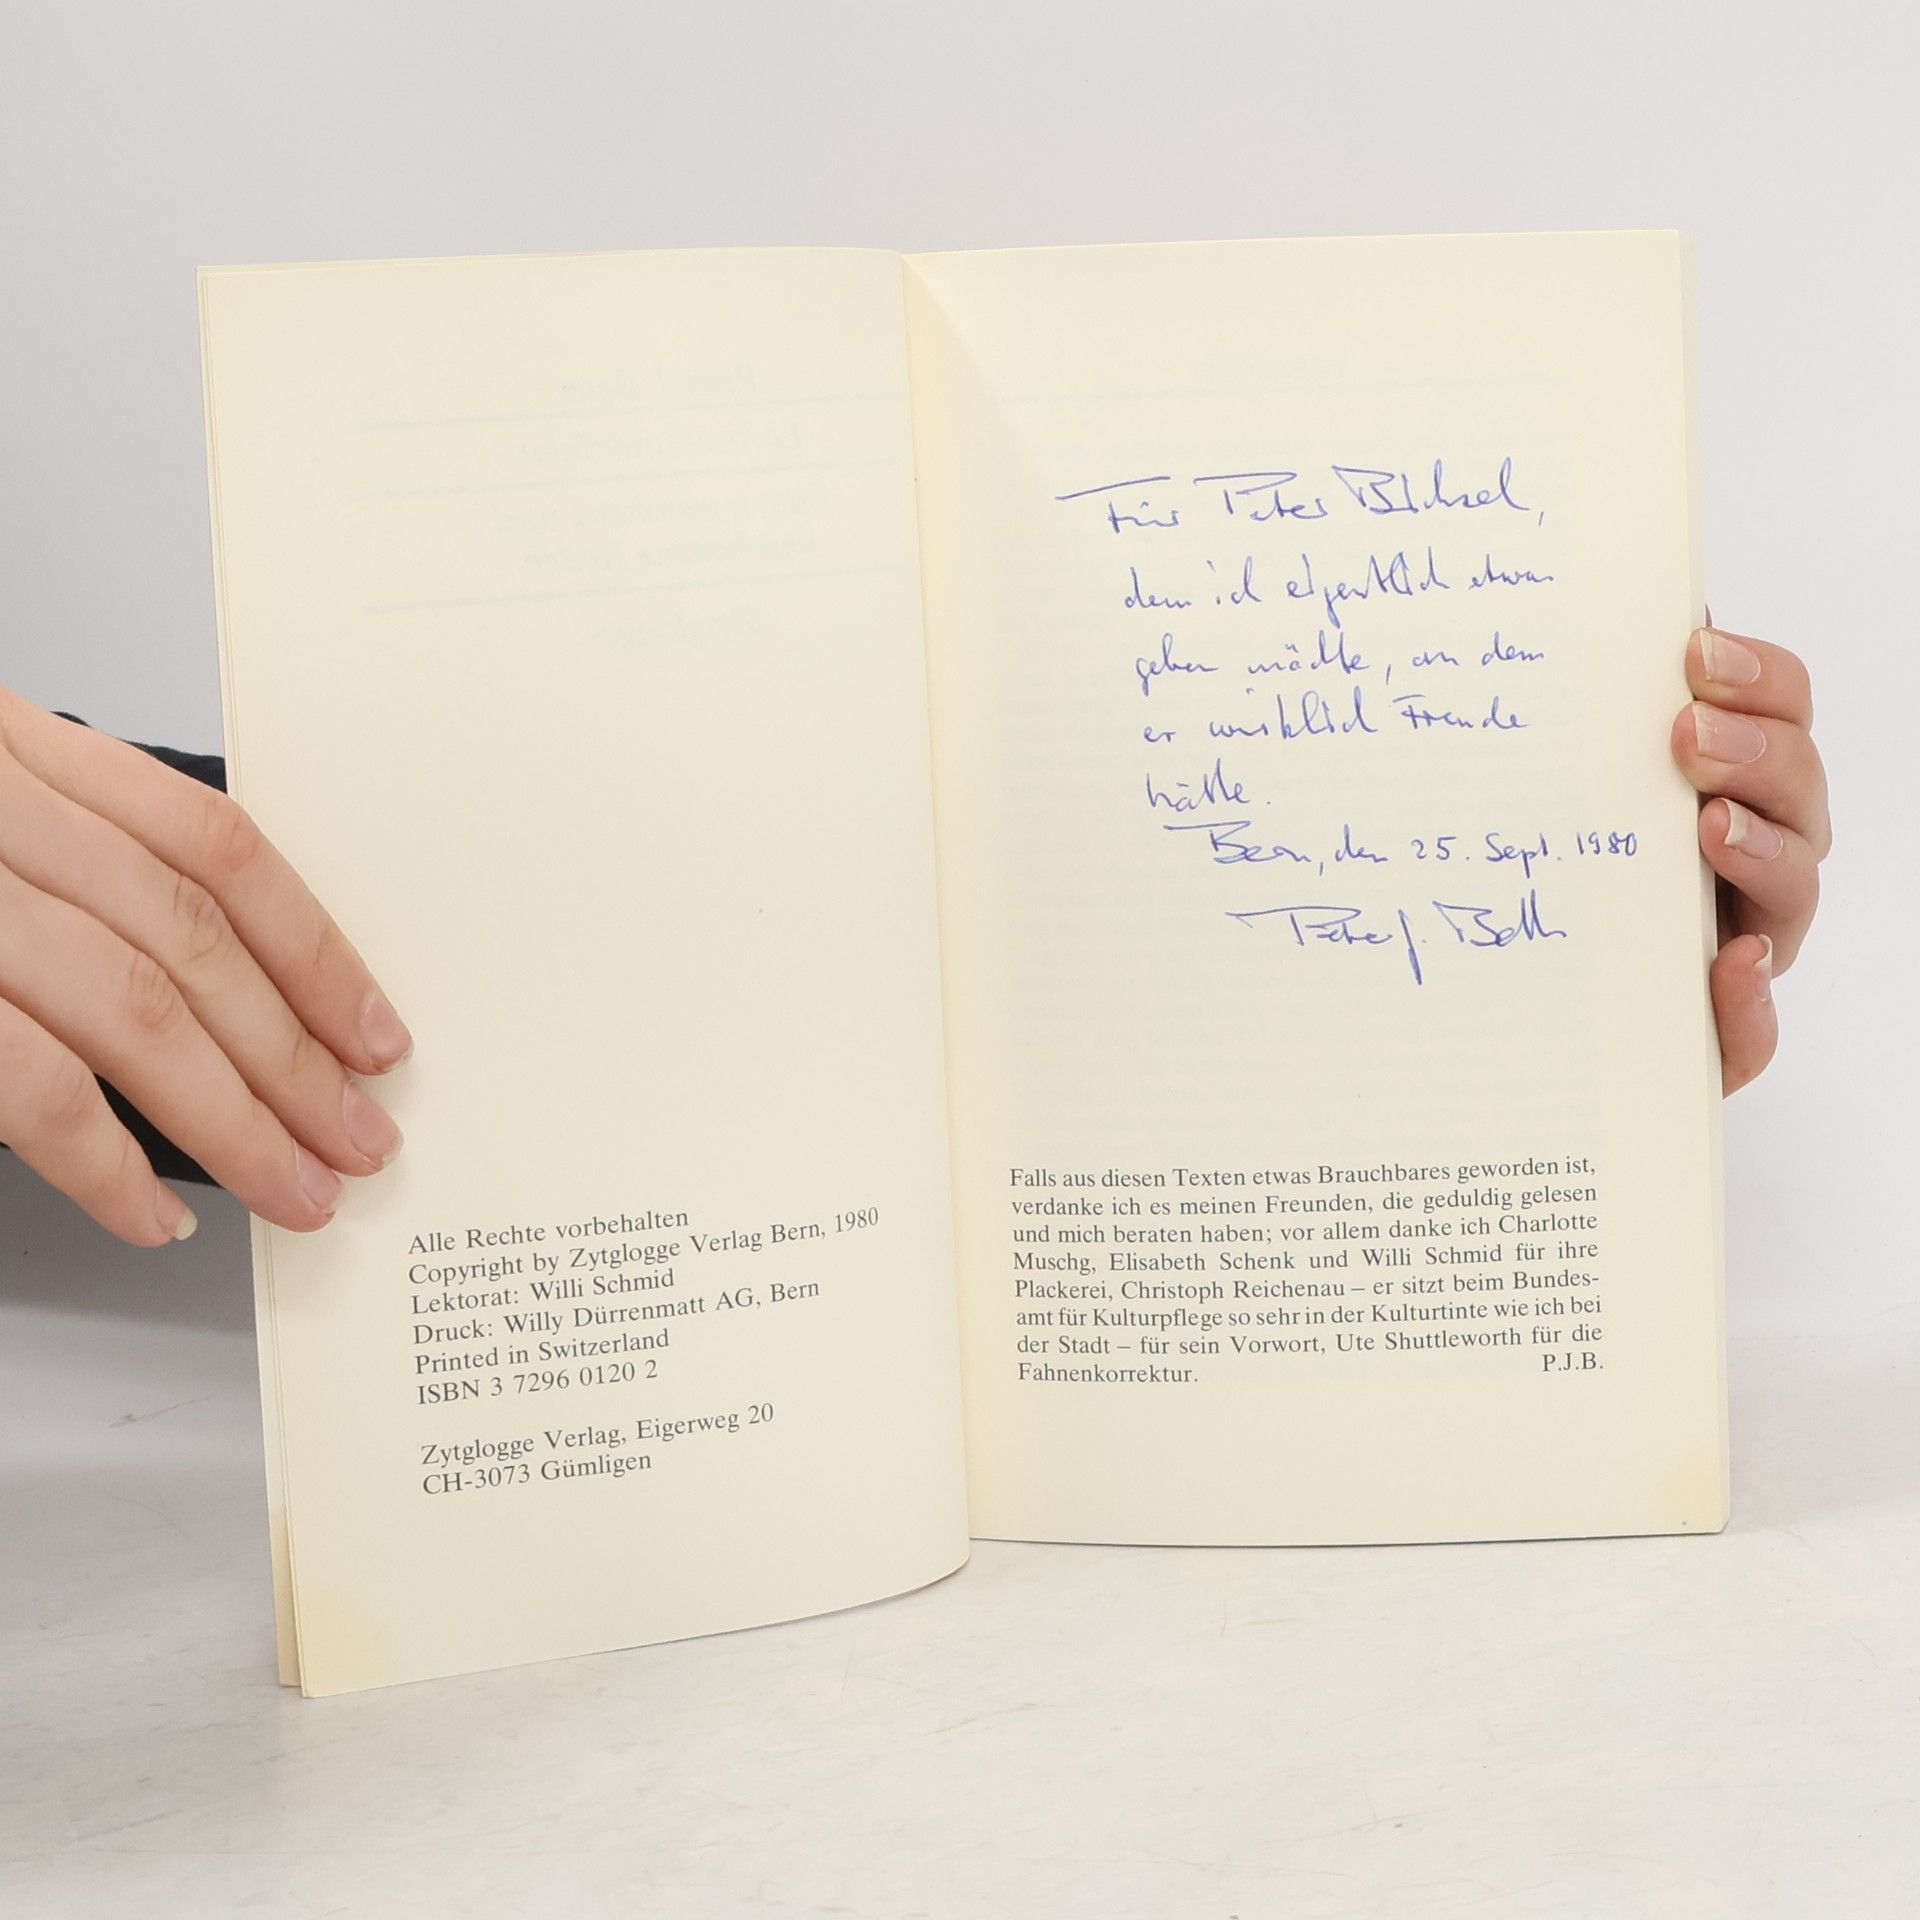 Alle Rechte vorbehalten
Copyright by Zytglogge Verlag Bern, 1980
Lektorat: Willi Schmid
Druck: Willy Dürrenmatt AG, Bern
Printed in Switzerland
ISBN 3 7296 0120 2
Zytglogge Verlag, Eigerweg 20
CH-3073 Gümligen
Für Peter Bichsel,
dem ich eigentlich etwas
geben möchte, an dem
er wirklich Freude
hätte.
Bern, den 25. Sept. 1980
Peter J. Betts
Falls aus diesen Texten etwas Brauchbares geworden ist,
verdanke ich es meinen Freunden, die geduldig gelesen
und mich beraten haben; vor allem danke ich Charlotte
Muschg, Elisabeth Schenk und Willi Schmid für ihre
Plackerei, Christoph Reichenau – er sitzt beim Bundes-
amt für Kulturpflege so sehr in der Kulturtinte wie ich bei
der Stadt – für sein Vorwort, Ute Shuttleworth für die
Fahnenkorrektur. P.J.B.